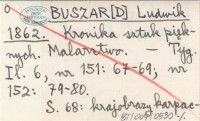 BUSZAR[D] Ludwik
1862. Kronika sztuk pięk-
nych. Malarstwo. — Tyg.
Il. 6, nr 151: 67-69; nr
152: 79-80.
S. 68: krajobrazy karpac-